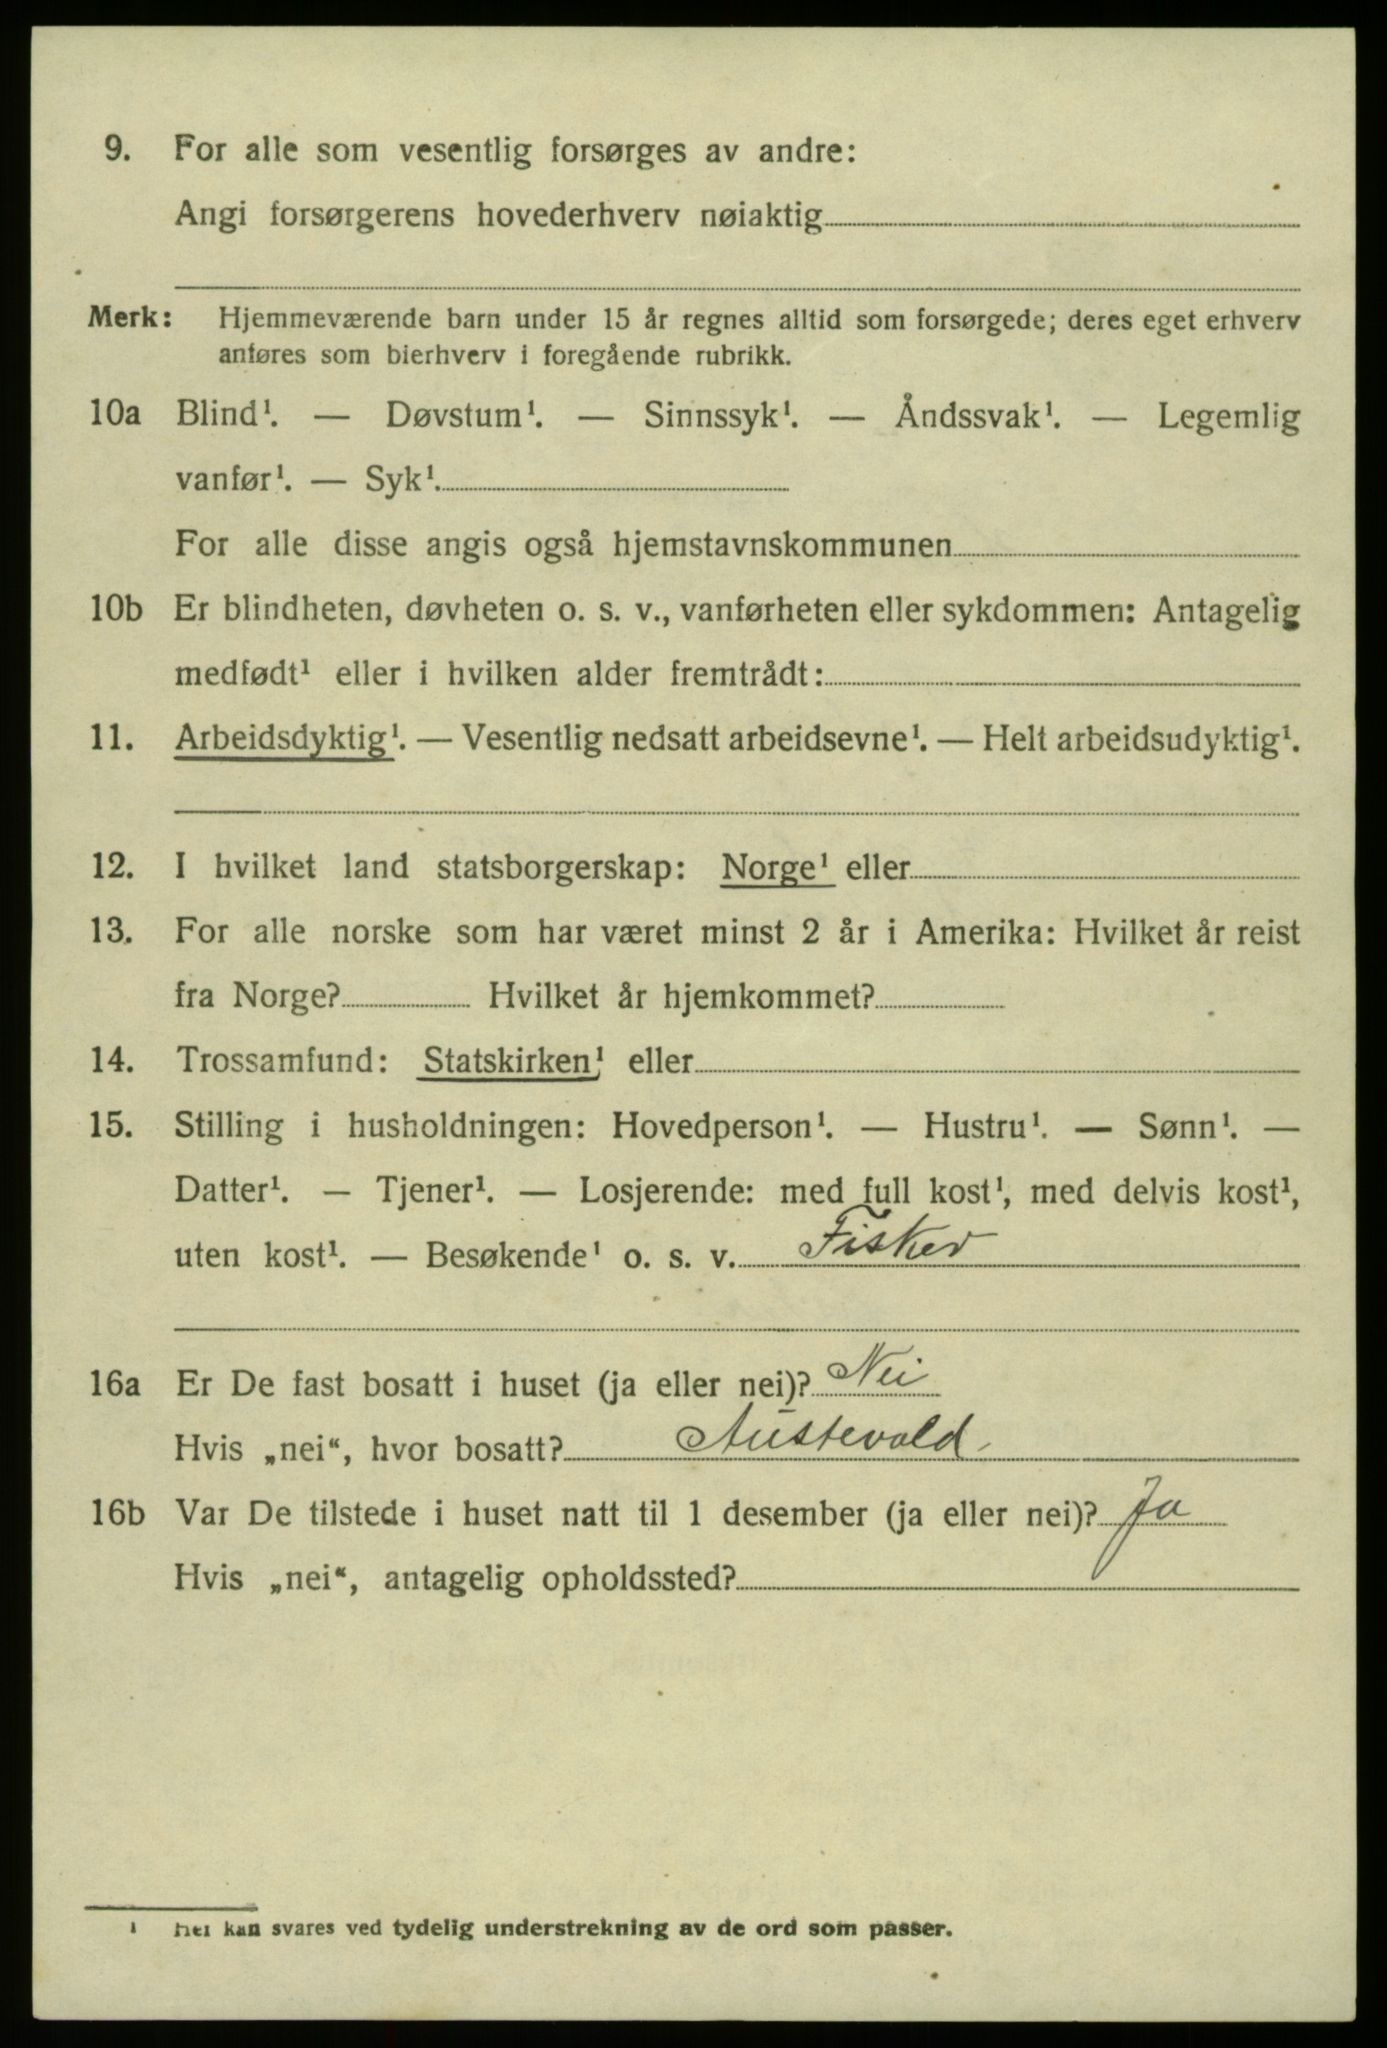 9. For alle som vesentlig forsørges av andre:
Angi forsørgerens hovederhverv nøiaktig
Merk: Hjemmeværende barn under 15 år regnes alltid som forsørgede; deres eget erhverv
anføres som bierhverv i foregående rubrikk.
10a Blind¹. — Døvstum¹. — Sinnssyk¹. — Åndssvak¹. — Legemlig
vanfør¹. — Syk¹.
For alle disse angis også hjemstavnskommunen
10b Er blindheten, døvheten o. s. v., vanførheten eller sykdommen: Antagelig
medfødt¹ eller i hvilken alder fremtrådt:
11. Arbeidsdyktig¹. — Vesentlig nedsatt arbeidsevne¹. — Helt arbeidsudyktig¹.
12. I hvilket land statsborgerskap: Norge¹ eller
13. For alle norske som har været minst 2 år i Amerika: Hvilket år reist
fra Norge? Hvilket år hjemkommet?
14. Trossamfund: Statskirken¹ eller
15. Stilling i husholdningen: Hovedperson¹. — Hustru¹. — Sønn¹. —
Datter¹. — Tjener¹. — Losjerende: med full kost¹, med delvis kost¹,
uten kost¹. — Besøkende¹ o. s. v. Fisker
16a Er De fast bosatt i huset (ja eller nei)? Nei
Hvis „nei“, hvor bosatt? Austevold
16b Var De tilstede i huset natt til 1 desember (ja eller nei)? Ja
Hvis „nei“, antagelig opholdssted?
¹ Her kan svares ved tydelig understrekning av de ord som passer.